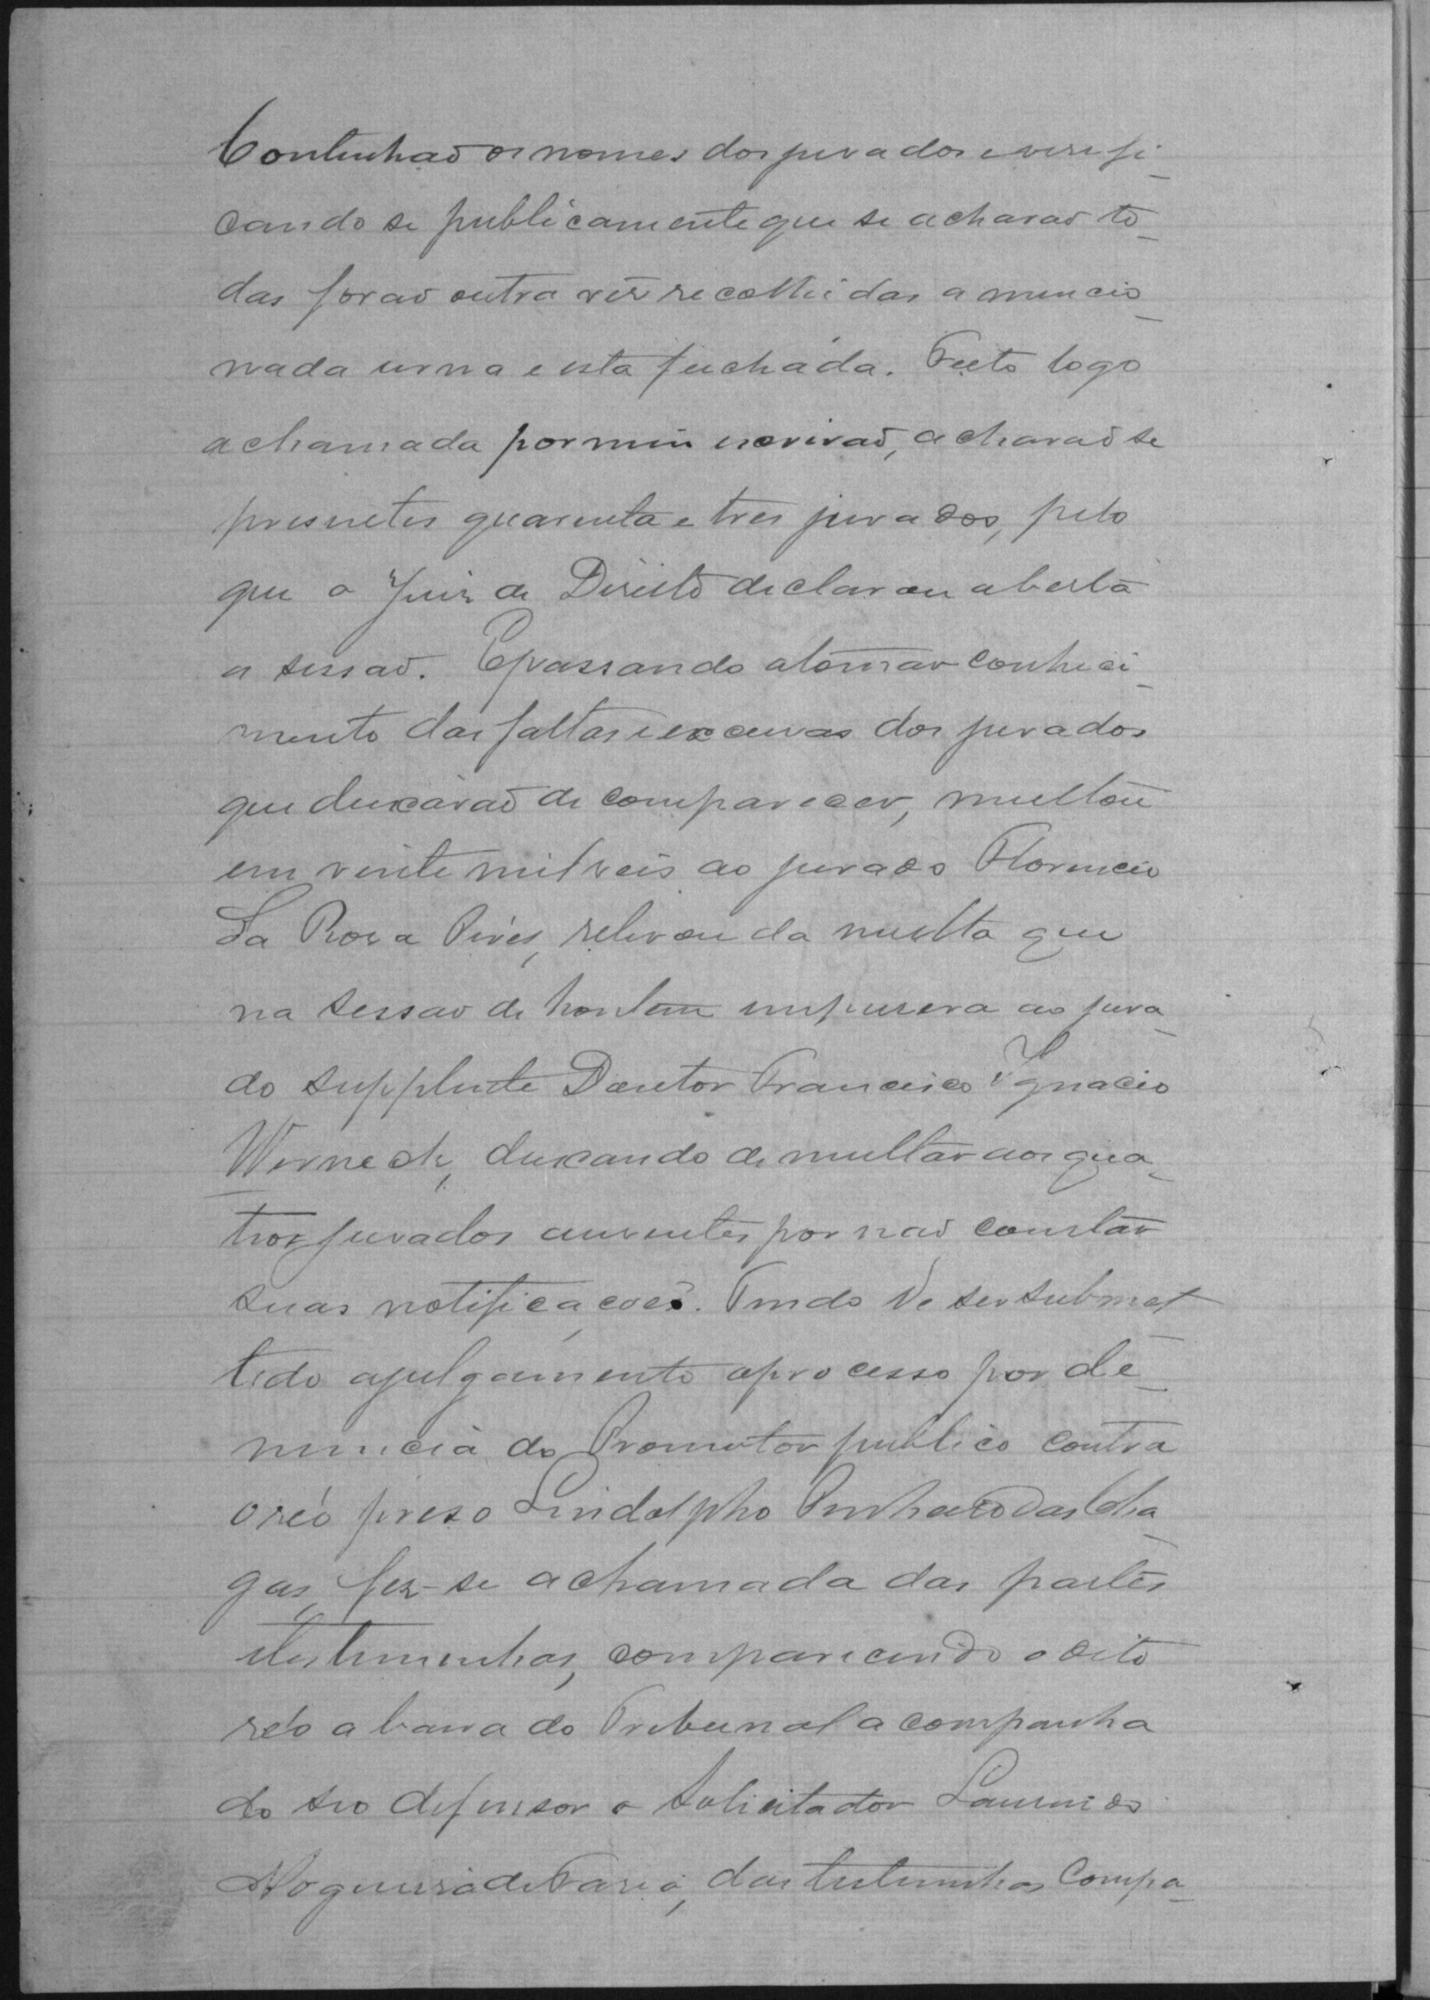 Continhão os nomes dos jurados e verifi-
cando se publicamente que se acharão to-
das forão outra vez recolhidas a mencio-
nada urna e esta fechada. Feito logo
a chamada por mim escrivão, acharão se
presentes quarenta e tres jurados, pelo
que o Juiz de Direito declarou aberta
a sessão. E passando a tomar conheci-
mento das faltas e excusas dos jurados
que deixárão de comparecer, multou
em vinte mil reis ao jurado Florencio
La Roza Pires, relevou da multa que
na sessão de hontem impusera ao jura-
do supplente Doutor Francisco Ignacio
Werneck, deixando de multar aos qua-
tros jurados ausentes por não constar
suas notificações. Tendo de ser submet
tido a julgamento o processo por de-
nuncia do Promotor publico contra
o réo preso Lindolpho Pinheiro das Cha-
gas, fez-se a chamada das partes
e testimunhas, comparecendo o dito
réo a barra do Tribunal acompanha
do seo defensor o Solicitador
Nogueira de Faria, das testimunhas compa-